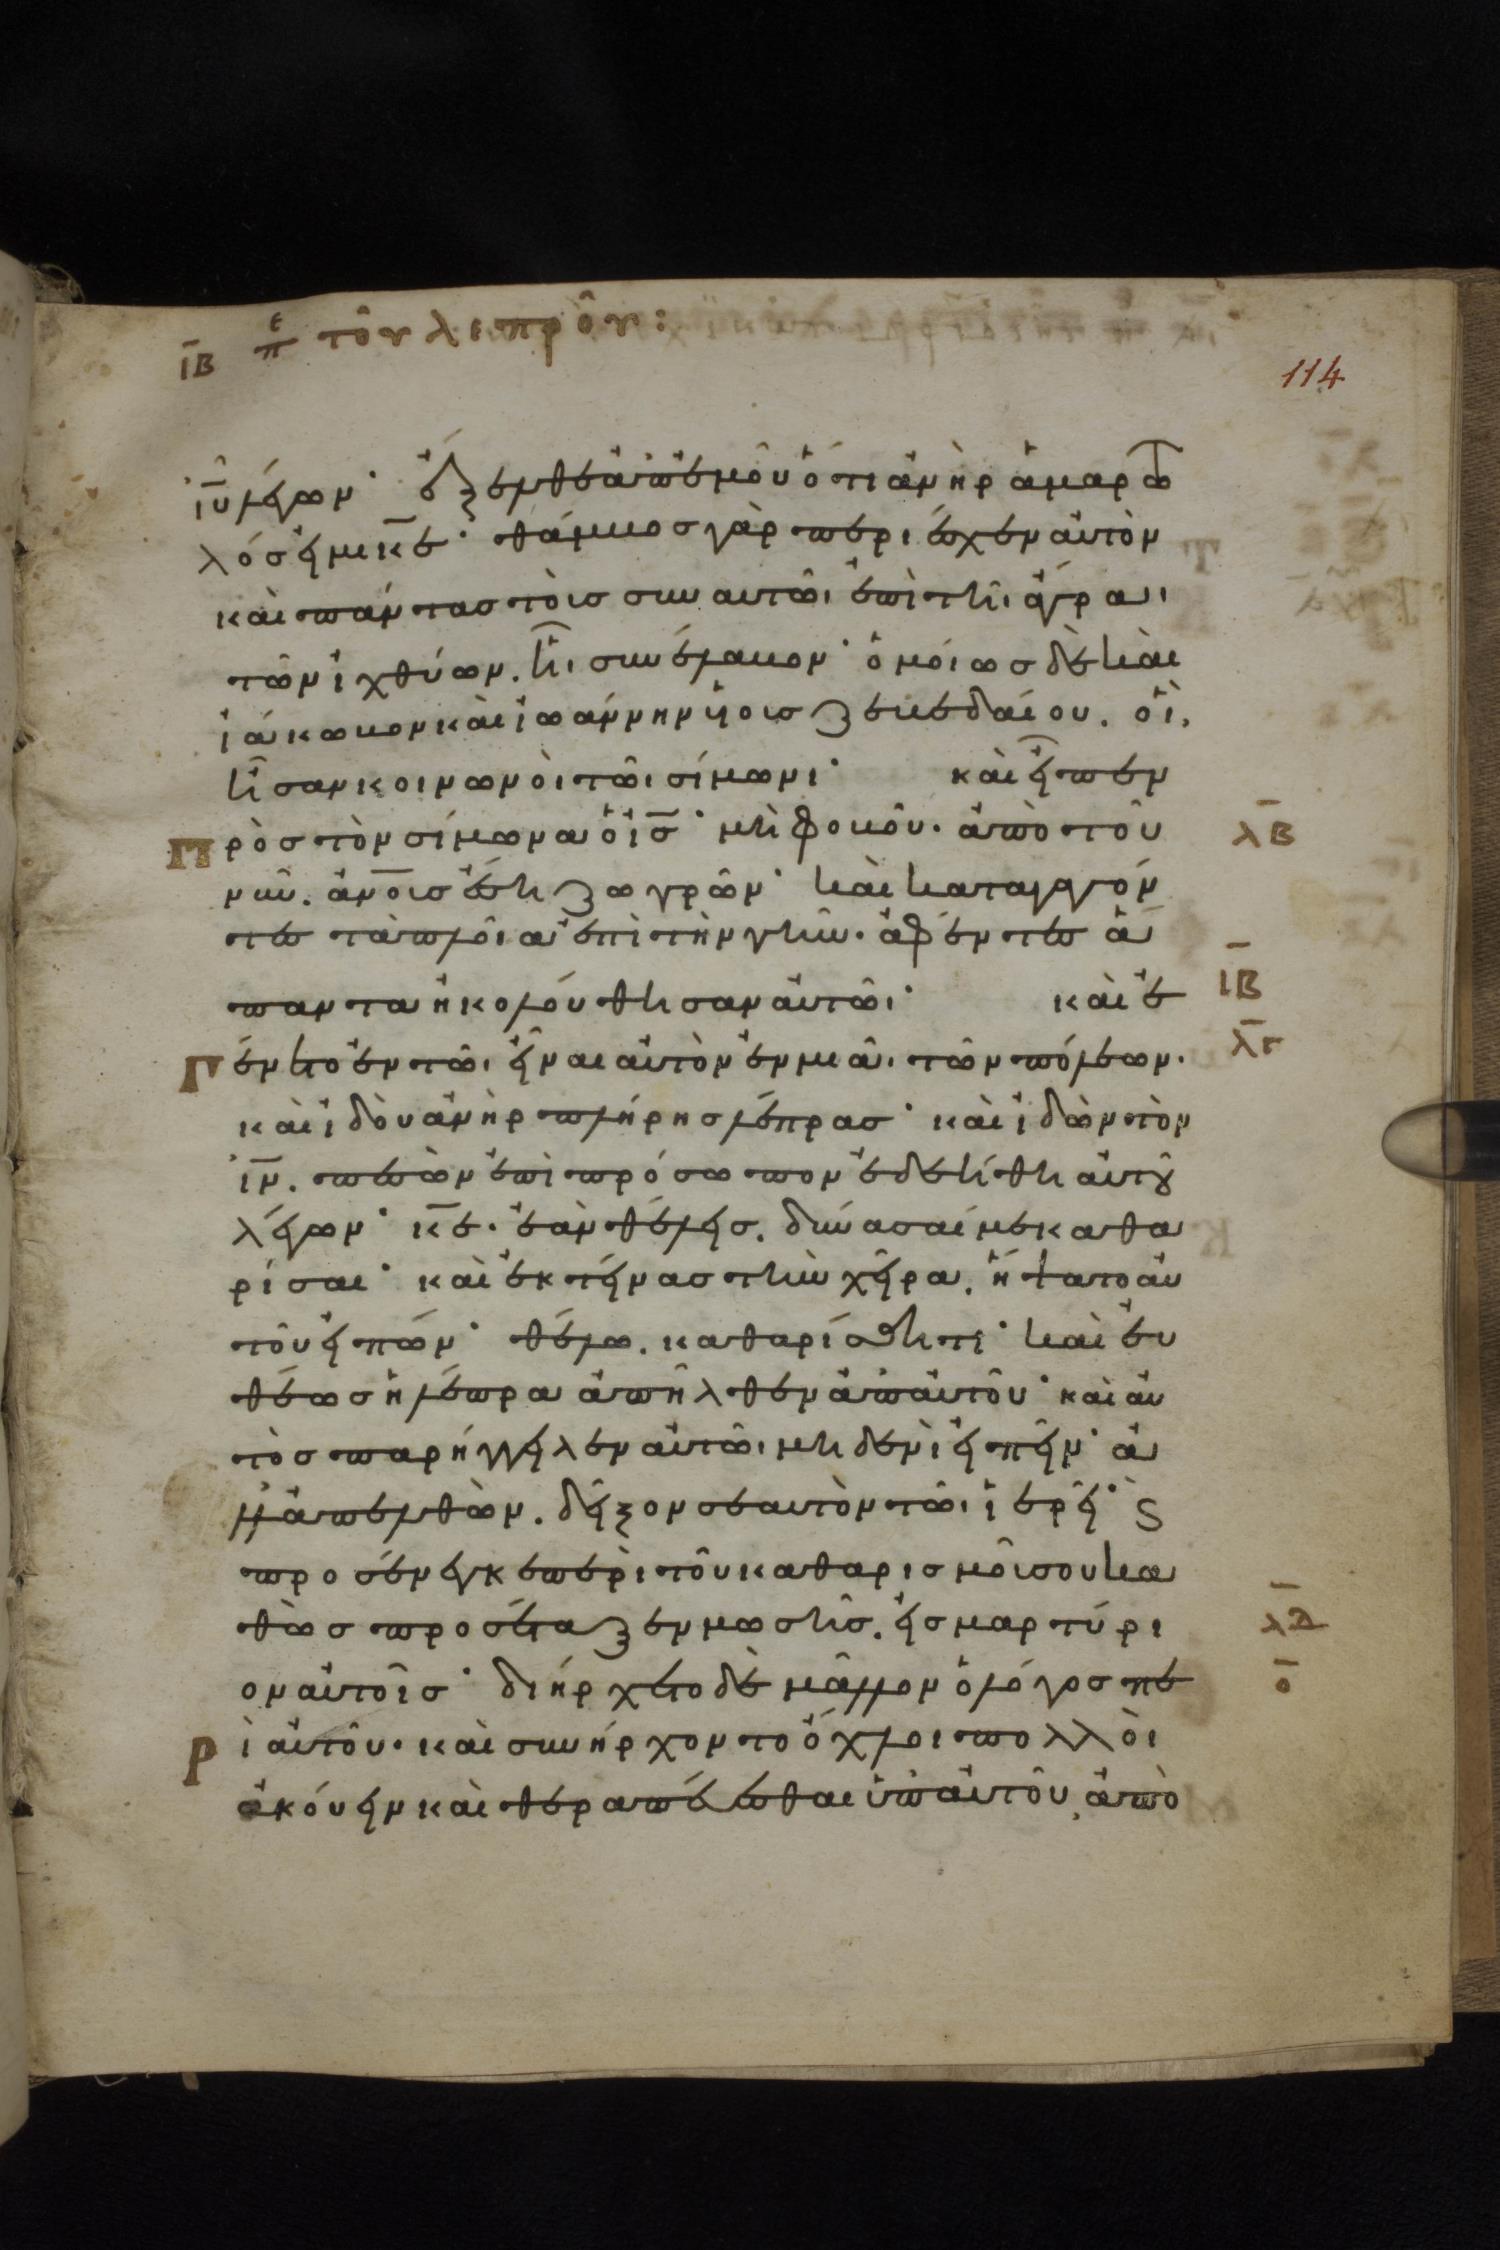 ιβ πε τοῦ λεπροῦ:
114
ἰῦ λέγων· ἔξελθε ἀπ' ἐμοῦ ὅτι ἀνὴρ ἁμαρτω
λός εἰμι κε· θάμβος γὰρ περιέσχεν αὐτὸν
καὶ πάντας τοὺς σὺν αὐτῶι ἐπὶ τῆι ἄγραι
τῶν ἰχθύων. ἧι συνέλαβον· ὁμοίως δὲ καὶ
ἰάκωβον καὶ ἰωάννην υἱοὺς ζεβεδαίου. οἳ
ἦσαν κοινωνοὶ τῶι σίμωνι· καὶ εἶπεν
Πρὸς τὸν σίμωνα ὁ ις· μὴ φοβοῦ. ἀπὸ τοῦ λβ
νῦν. ἀνους ἔση ζωγρῶν· καὶ καταγαγόν
τες τὰ πλοῖα ἐπὶ τὴν γῆν. ἀφέντες ἅ
παντα ἠκολούθησαν αὐτῶι· καὶ ἐ ιβ
Γένετο ἐν τῶι εἶναι αὐτὸν ἐν μιᾶι τῶν πόλεων. λγ
καὶ ἰδοὺ ἀνὴρ πλήρης λέπρας· καὶ ἰδὼν τὸν
ιν. πεσὼν ἐπὶ πρόσωπον ἐδεήθη αὐτοῦ
λέγων· κε. ἐὰν θέλης. δύνασαί με καθα
ρίσαι· καὶ ἐκτείνας τὴν χεῖρα. ἥψατο αὐ
τοῦ εἰπών· θέλω. καθαρίσθητι· καὶ εὐ
θέως ἡ λέπρα ἀπῆλθεν ἀπ' αὐτοῦ· καὶ αὐ
τὸς παρήγγειλεν αὐτῶι μηδενὶ εἰπεῖν· ἀ
λλ' ἀπελθὼν. δεῖξον σεαυτὸν τῶι ἱερεῖ· ϗ
προσένεγκε περὶ τοῦ καθαρισμοῦ σου κα
θὼς προσέταξεν μωσῆς. εἰς μαρτύρι λδ
ον αὐτοῖς· διήρχετο δὲ μᾶλλον ὁ λόγος πε ο
Ρὶ αὐτοῦ. καὶ συνήρχοντο ὄχλοι πολλοὶ
ἀκούειν καὶ θεραπεύεσθαι ὑπ' αὐτοῦ ἀπὸ